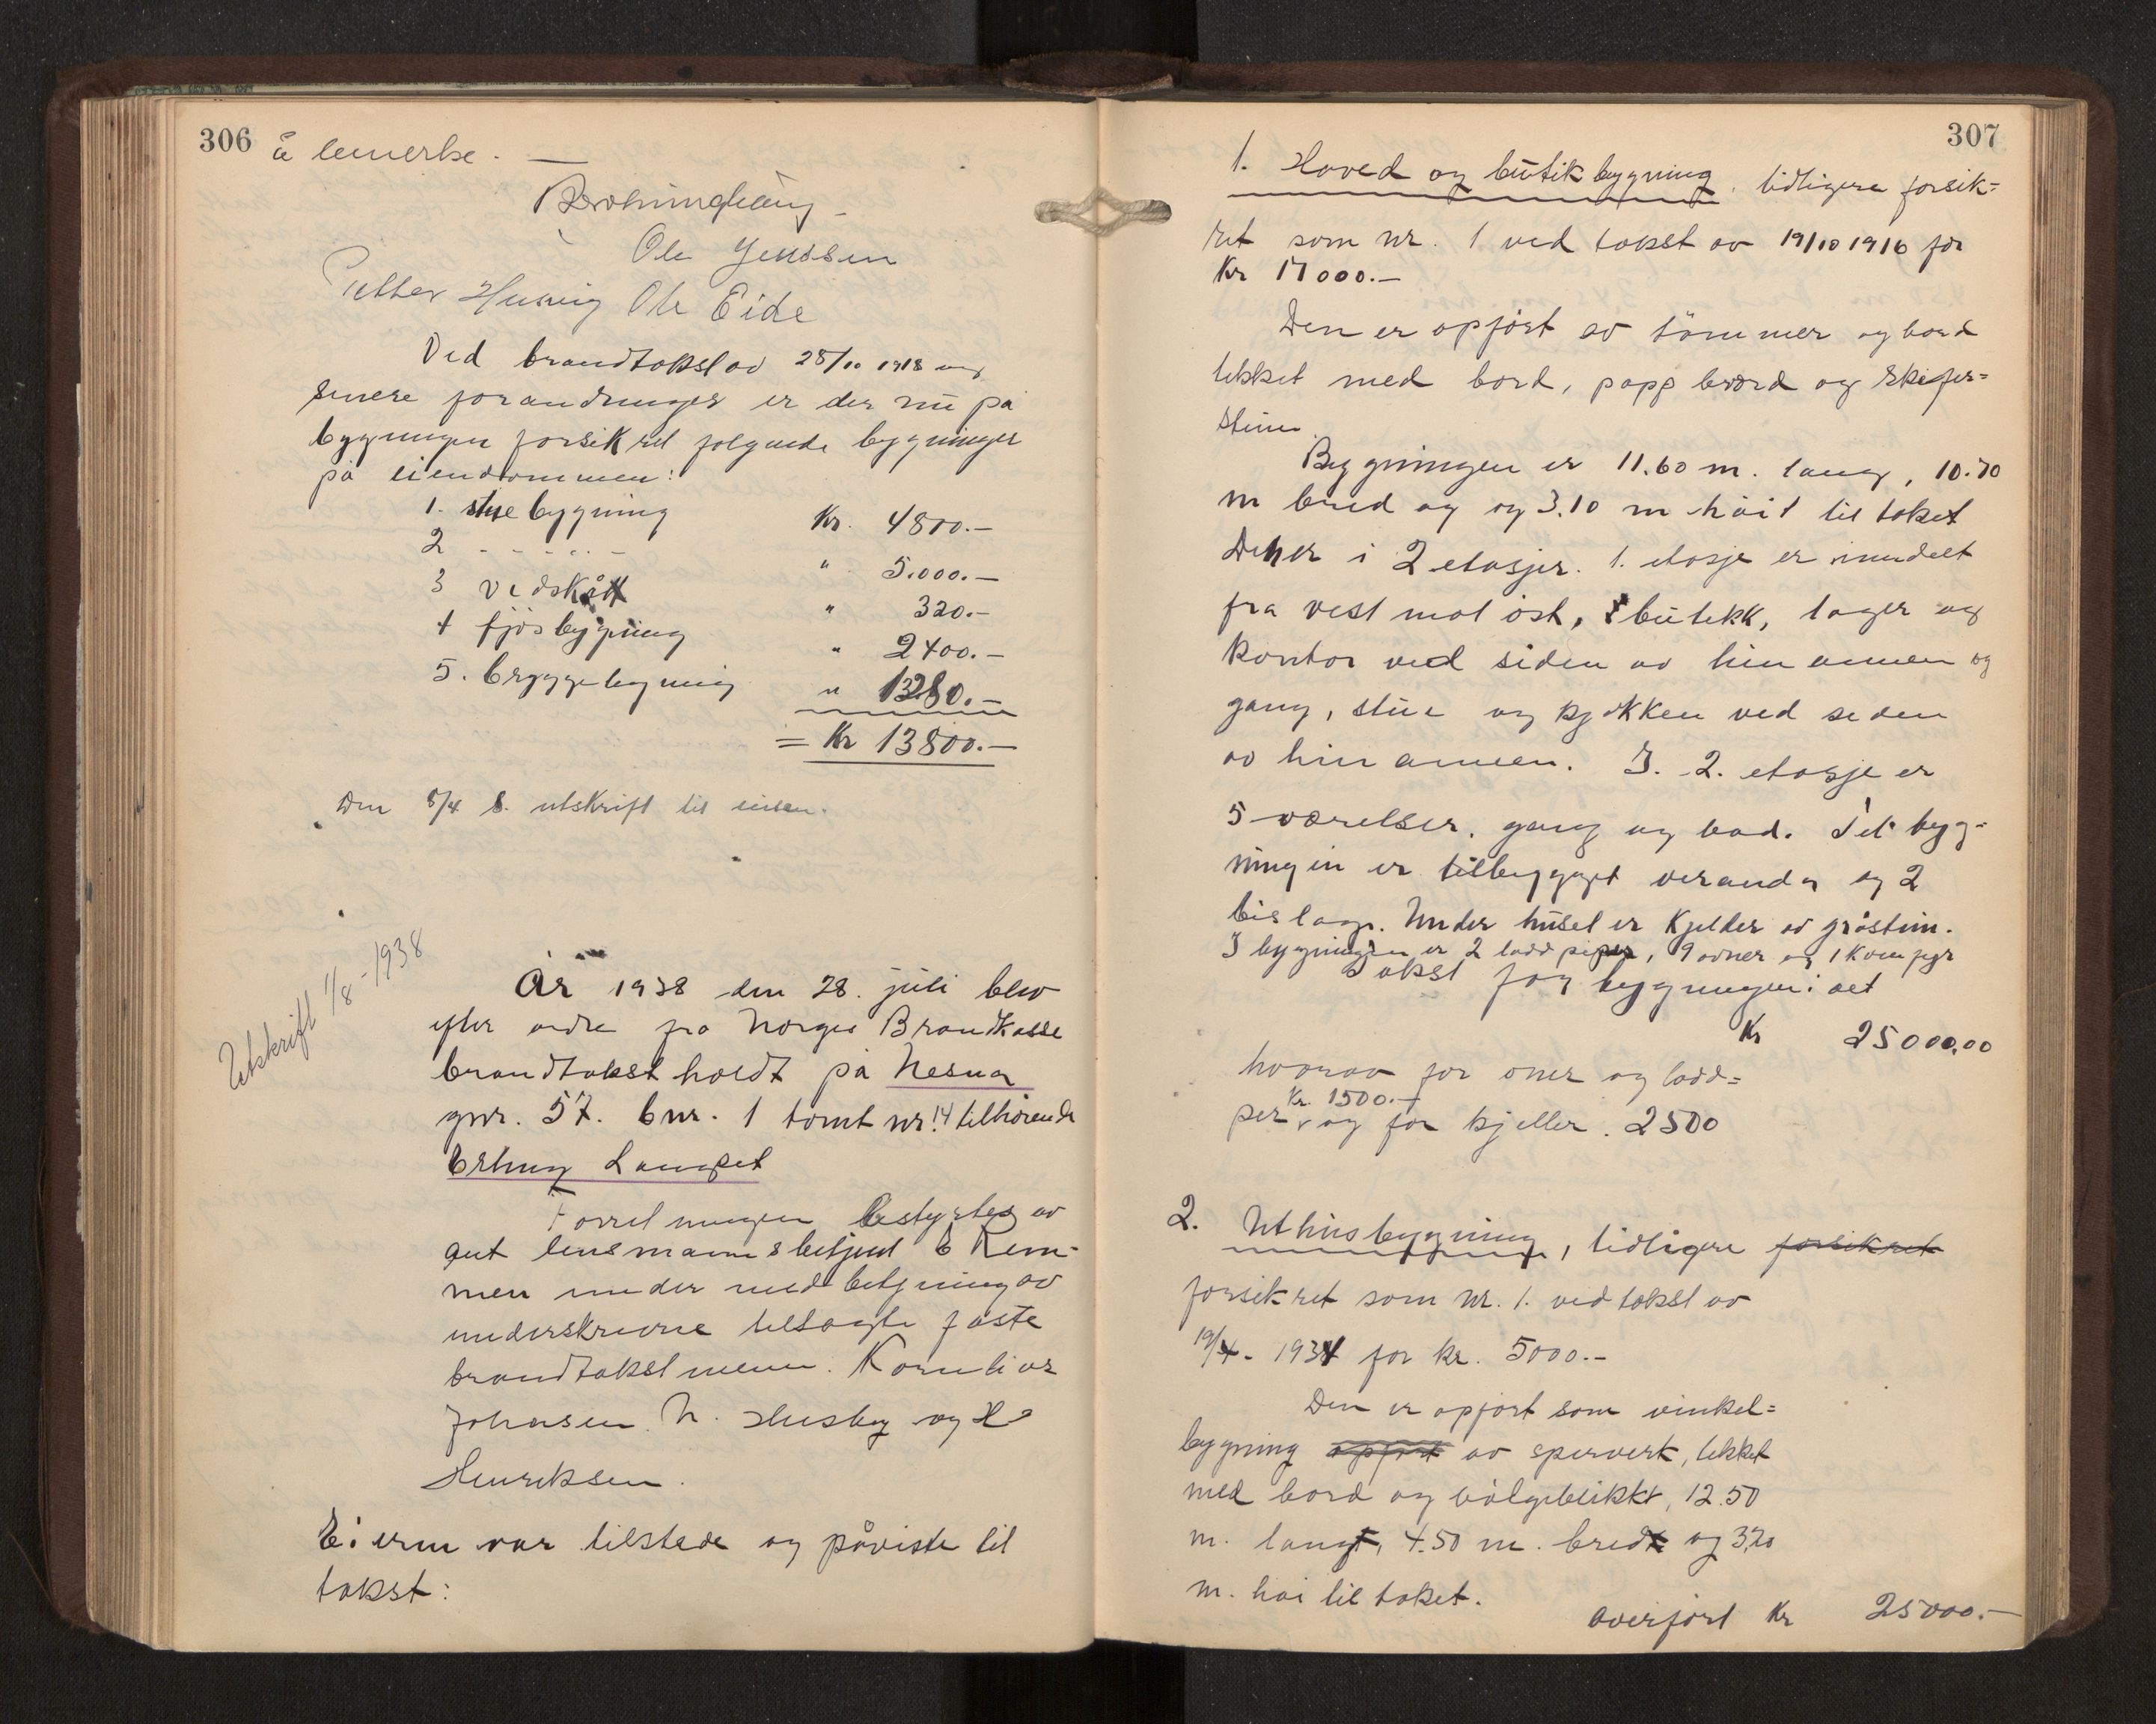 306
å bemerke. —
Ole Jenssen
Petter Husvig Ole Eide
Ved brandtakst av 28/10 1918 og
senere forandringer er der nu på
bygningen forsikret følgende bygninger
på eiendommen:
1. stuebygning Kr. 4800.—
2 - - - - - " 5.000.—
3 vedskått " 320.—
4 fjøsbygning " 2400.—
5. bryggebygning " 1280.—
= Kr 13800.—
Den 8/4 8. utskrift til eieren.
Utskrift 1/8-1938
År 1938 den 28. juli blev
efter ordre fra Norges Brandkasse
brandtakst holdt på Nesna
gnr. 57. bnr. 1 tomt nr. 14 tilhørende
Erling Langset
Forretningen bestyrtes av
aut lensmannsbetjent E Rem-
men under med betjening av
underskrevne tilsagte faste
brandtakstmenn. Kornelius
Johnsen N. Husby og H
Henriksen.
Eieren var tilstede og påviste til
takst:
307
1. Hoved og butikbygning, tidligere forsik=
ret som nr. 1 ved takst av 19/10 1916 for
Kr 17000.—
Den er opført av tømmer og bord
tekket med bord, papp bord og skifer=
stein
Bygningen er 11.60 m. lang, 10.70
m bred og og 3.10 m høit til taket
Den er i 2 etasjer. 1. etasje er inndelt
fra vest mot øst, butikk, lager og
kontor ved siden av hinannen og
gang, stue og kjøkken ved siden
av hinannen. I. 2. etasje er
5 værelser, gang og bad. Til byg=
ningen er tilbygget veranda og 2
bislag. Under huset er kjelder av gråstein.
I bygningen er 2 ladd piper, 9 ovner og 1 komfyr
Takst for bygningen: alt
Kr 25000,00
hvorav for ovner og ladd=
Kr. 1500.—
per, og for kjeller. 2500
2. Uthusbygning, tidligere forsikret
forsikret som nr. 1. ved takst av
19/4- 1934 for kr. 5000.-
Den er opført som vinkel=
bygning opført av sperverk, tekket
med bord og bølgeblikk, 12.50
m. lang, 4.50 m. bred og 3,20
m. høi til taket.
Overført Kr 25000.—